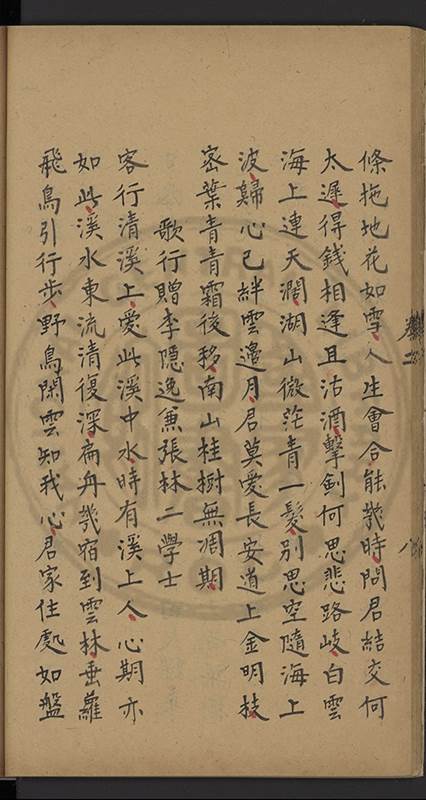 條拖地花如雪人生會合能幾時問君結交何
太遲得錢相逢且沽酒擊劍何思悲路歧白雲
海上連天濶湖山微茫青一髮別思空隨海上
波歸心已絆雲邊月君莫愛長安道上金明枝
密葉青青霜後移南山桂樹無凋期
歌行贈李隱逸兼張林二學士
客行清溪上愛此溪中水時有溪上人心期亦
如此溪水東流清復深扁舟幾宿到雲林垂蘿
飛鳥引行步野鳥閑雲知我心君家住處如盤